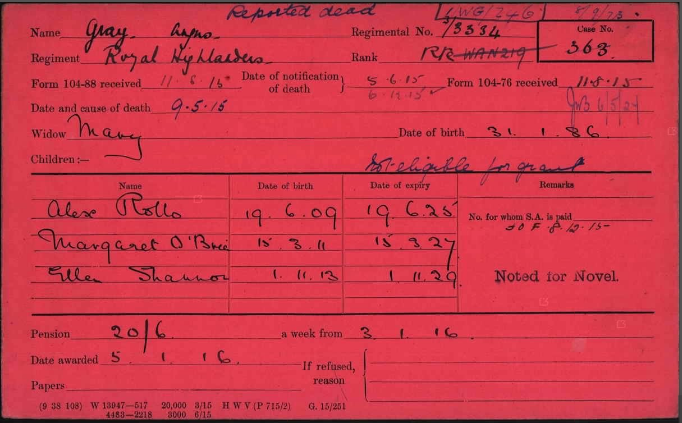 Reported dead
Name Gray Angus. Regimental No. 3/3334 Case No.
Regiment Royal Highlanders. Rank 363
Form 104-88 received 11.6.15 Date of notification of death } 5.6.15 Form 104-76 received 11.8.15
6.12.15
Date and cause of death 9.5.15
Widow Mary Date of birth 31. 1. 86.
Children:—
Not eligible for grant
Name Date of birth Date of expiry Remarks
Alex Rollo 19. 6. 09 19. 6. 25 No. for whom S.A. is paid
Margaret O'Brie 15. 3. 11 15. 3. 27
Ellen Shannon 1. 11. 13 1. 11. 29 Noted for Novel.
Pension 20/6 a week from 3. 1. 16.
Date awarded 5. 1. 16. If refused, reason
Papers
(9 38 108) W 13947—517 20,000 3/15 H W V (P 715/2) G. 15/251
4483—2218 3000 6/15